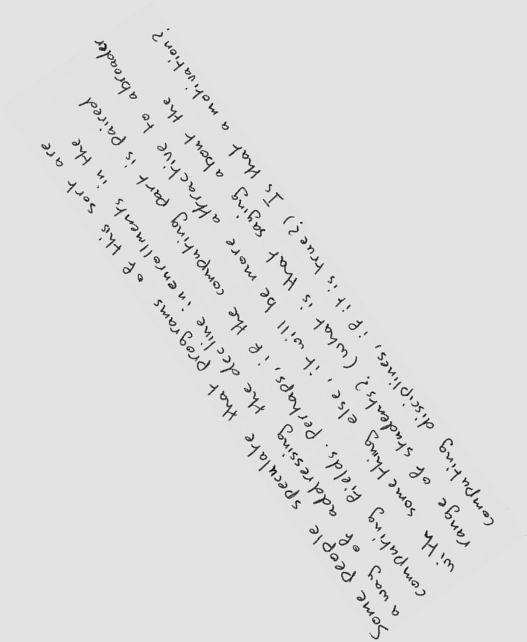 Some people speculate that programs of this sort are
a way of addressing the decline in enrollments in the
computing fields. Perhaps, if the computing part is paired
with something else, it will be more attractive to abroader
range of students? (What is that saying about the
computing disciplines, if it is true?) Is that a motivation?